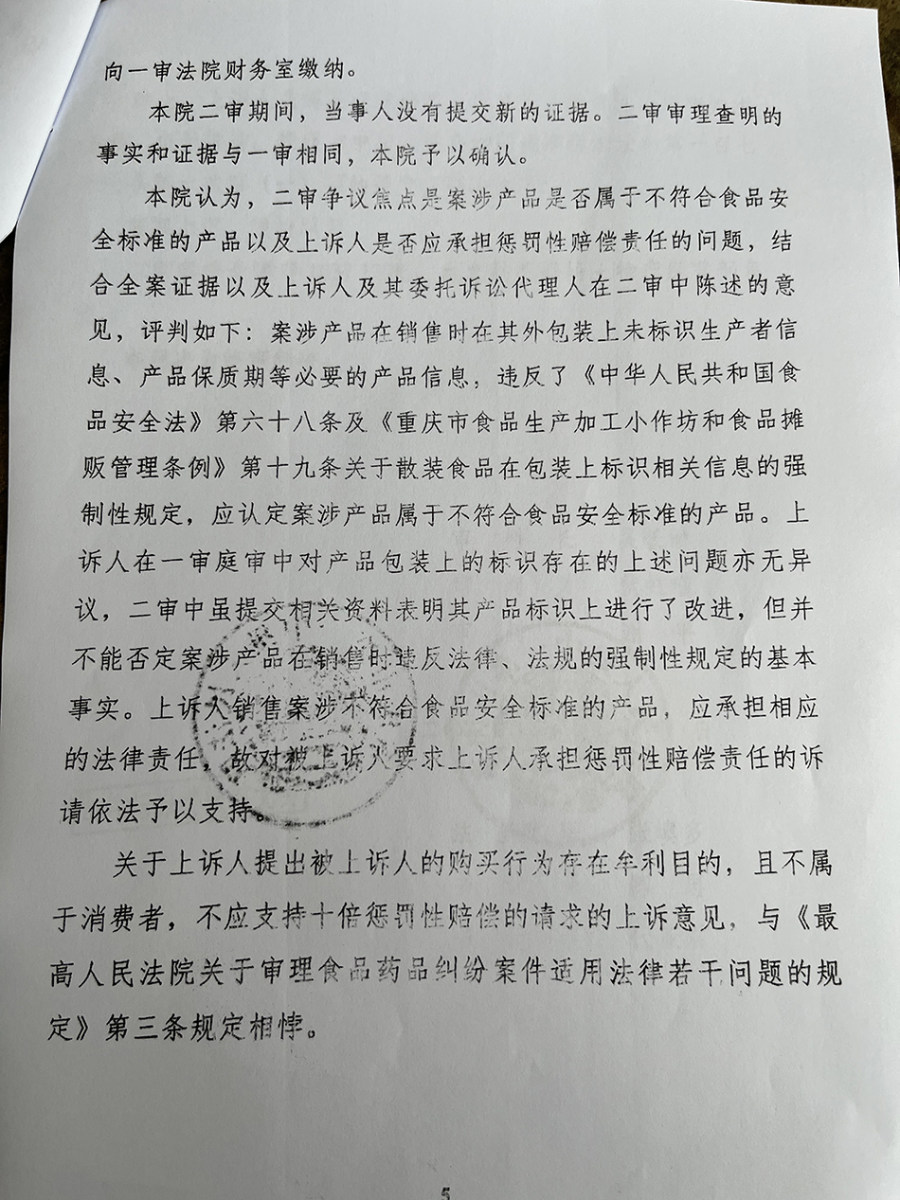 向一审法院财务室缴纳。
本院二审期间，当事人没有提交新的证据。二审审理查明的
事实和证据与一审相同，本院予以确认。
本院认为，二审争议焦点是案涉产品是否属于不符合食品安
全标准的产品以及上诉人是否应承担惩罚性赔偿责任的问题，结
合全案证据以及上诉人及其委托诉讼代理人在二审中陈述的意
见，评判如下：案涉产品在销售时在其外包装上未标识生产者信
息、产品保质期等必要的产品信息，违反了《中华人民共和国食
品安全法》第六十八条及《重庆市食品生产加工小作坊和食品摊
贩管理条例》第十九条关于散装食品在包装上标识相关信息的强
制性规定，应认定案涉产品属于不符合食品安全标准的产品。上
诉人在一审庭审中对产品包装上的标识存在的上述问题亦无异
议，二审中虽提交相关资料表明其产品标识上进行了改进，但并
不能否定案涉产品在销售时违反法律、法规的强制性规定的基本
事实。上诉人销售案涉不符合食品安全标准的产品，应承担相应
的法律责任，故对被上诉人要求上诉人承担惩罚性赔偿责任的诉
请依法予以支持。
关于上诉人提出被上诉人的购买行为存在牟利目的，且不属
于消费者，不应支持十倍惩罚性赔偿的请求的上诉意见，与《最
高人民法院关于审理食品药品纠纷案件适用法律若干问题的规
定》第三条规定相悖。
5